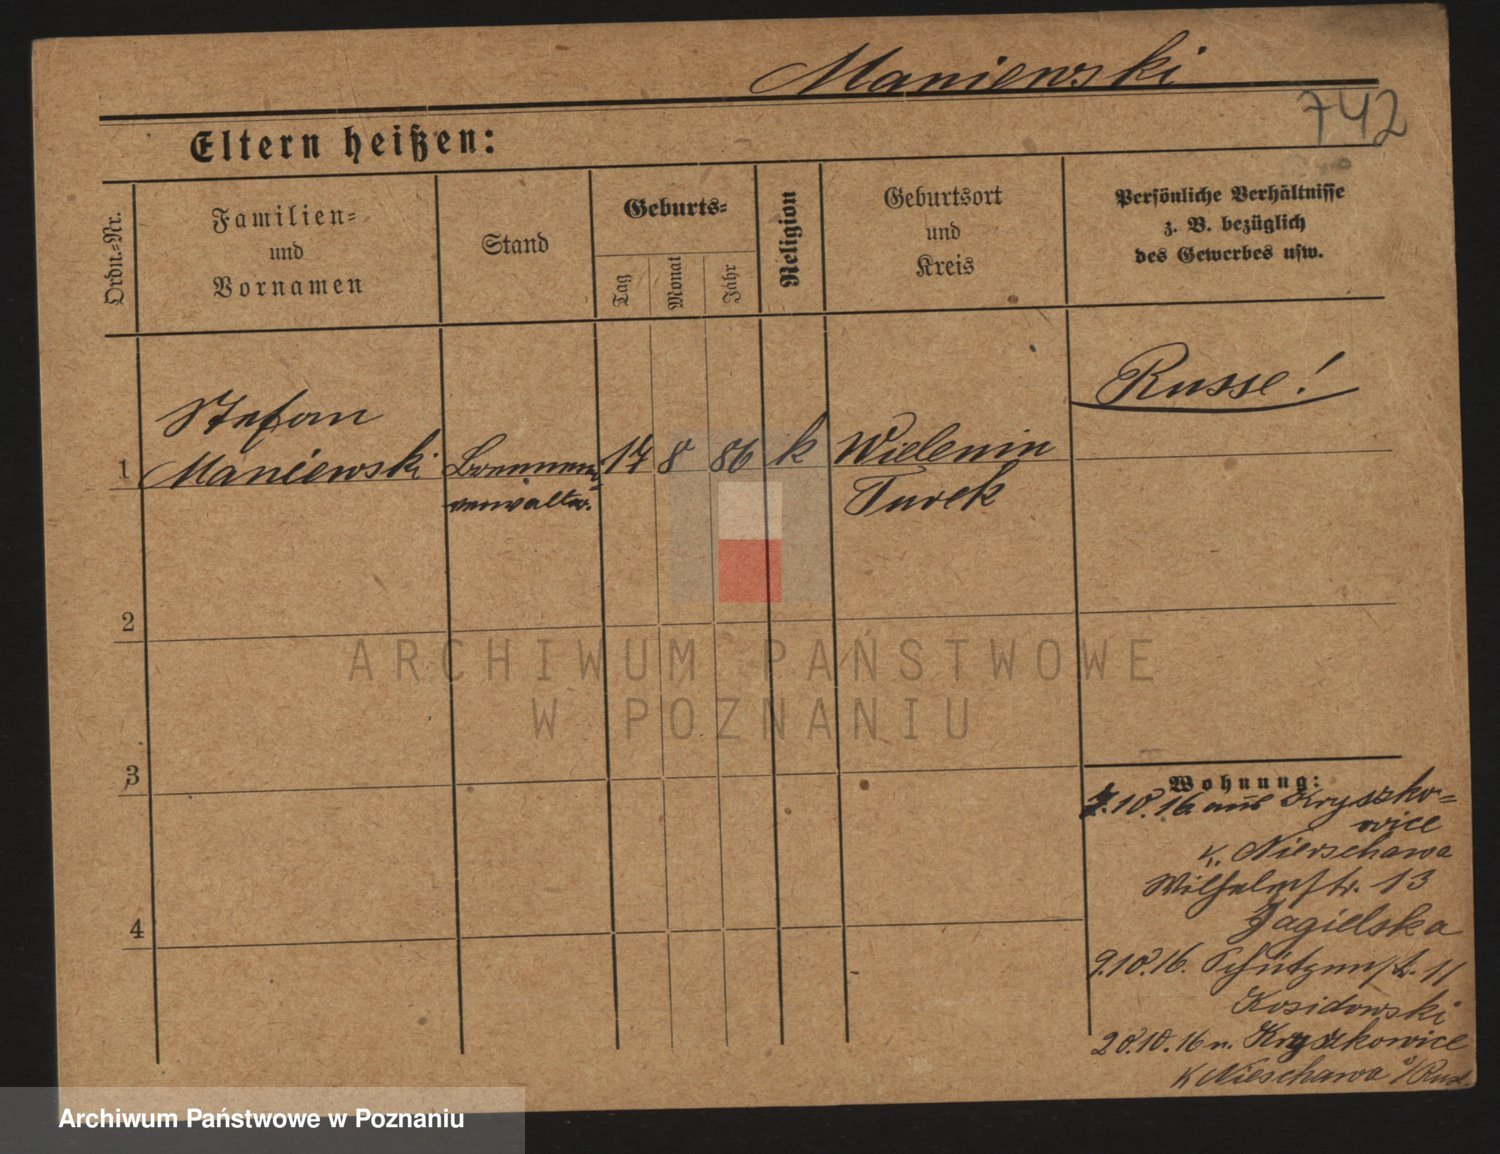 Maniewski
742
Eltern heißen:
Ordn.-Nr.
Familien-
und
Vornamen
Stand
Geburts-
Tag
Monat
Jahr
Religion
Geburtsort
und
Kreis
Persönliche Verhältnisse
z. B. bezüglich
des Gewerbes usw.
Russe!
1
Stefan
Maniewski
Brennerei
verwalter.
17
8
86
k
Wielenin
Turek
2
3
4
ARCHIWUM PAŃSTWOWE
W POZNANIU
Wohnung:
10.16 aus Kryszko-
wice
K. Nierschawa
Wilhelmstr. 13
Jagielska
9.10.16. Schützenstr. 11
Kosidowski
20.10.16 n. Kryszkowice
K Nieschawa
Archiwum Państwowe w Poznaniu